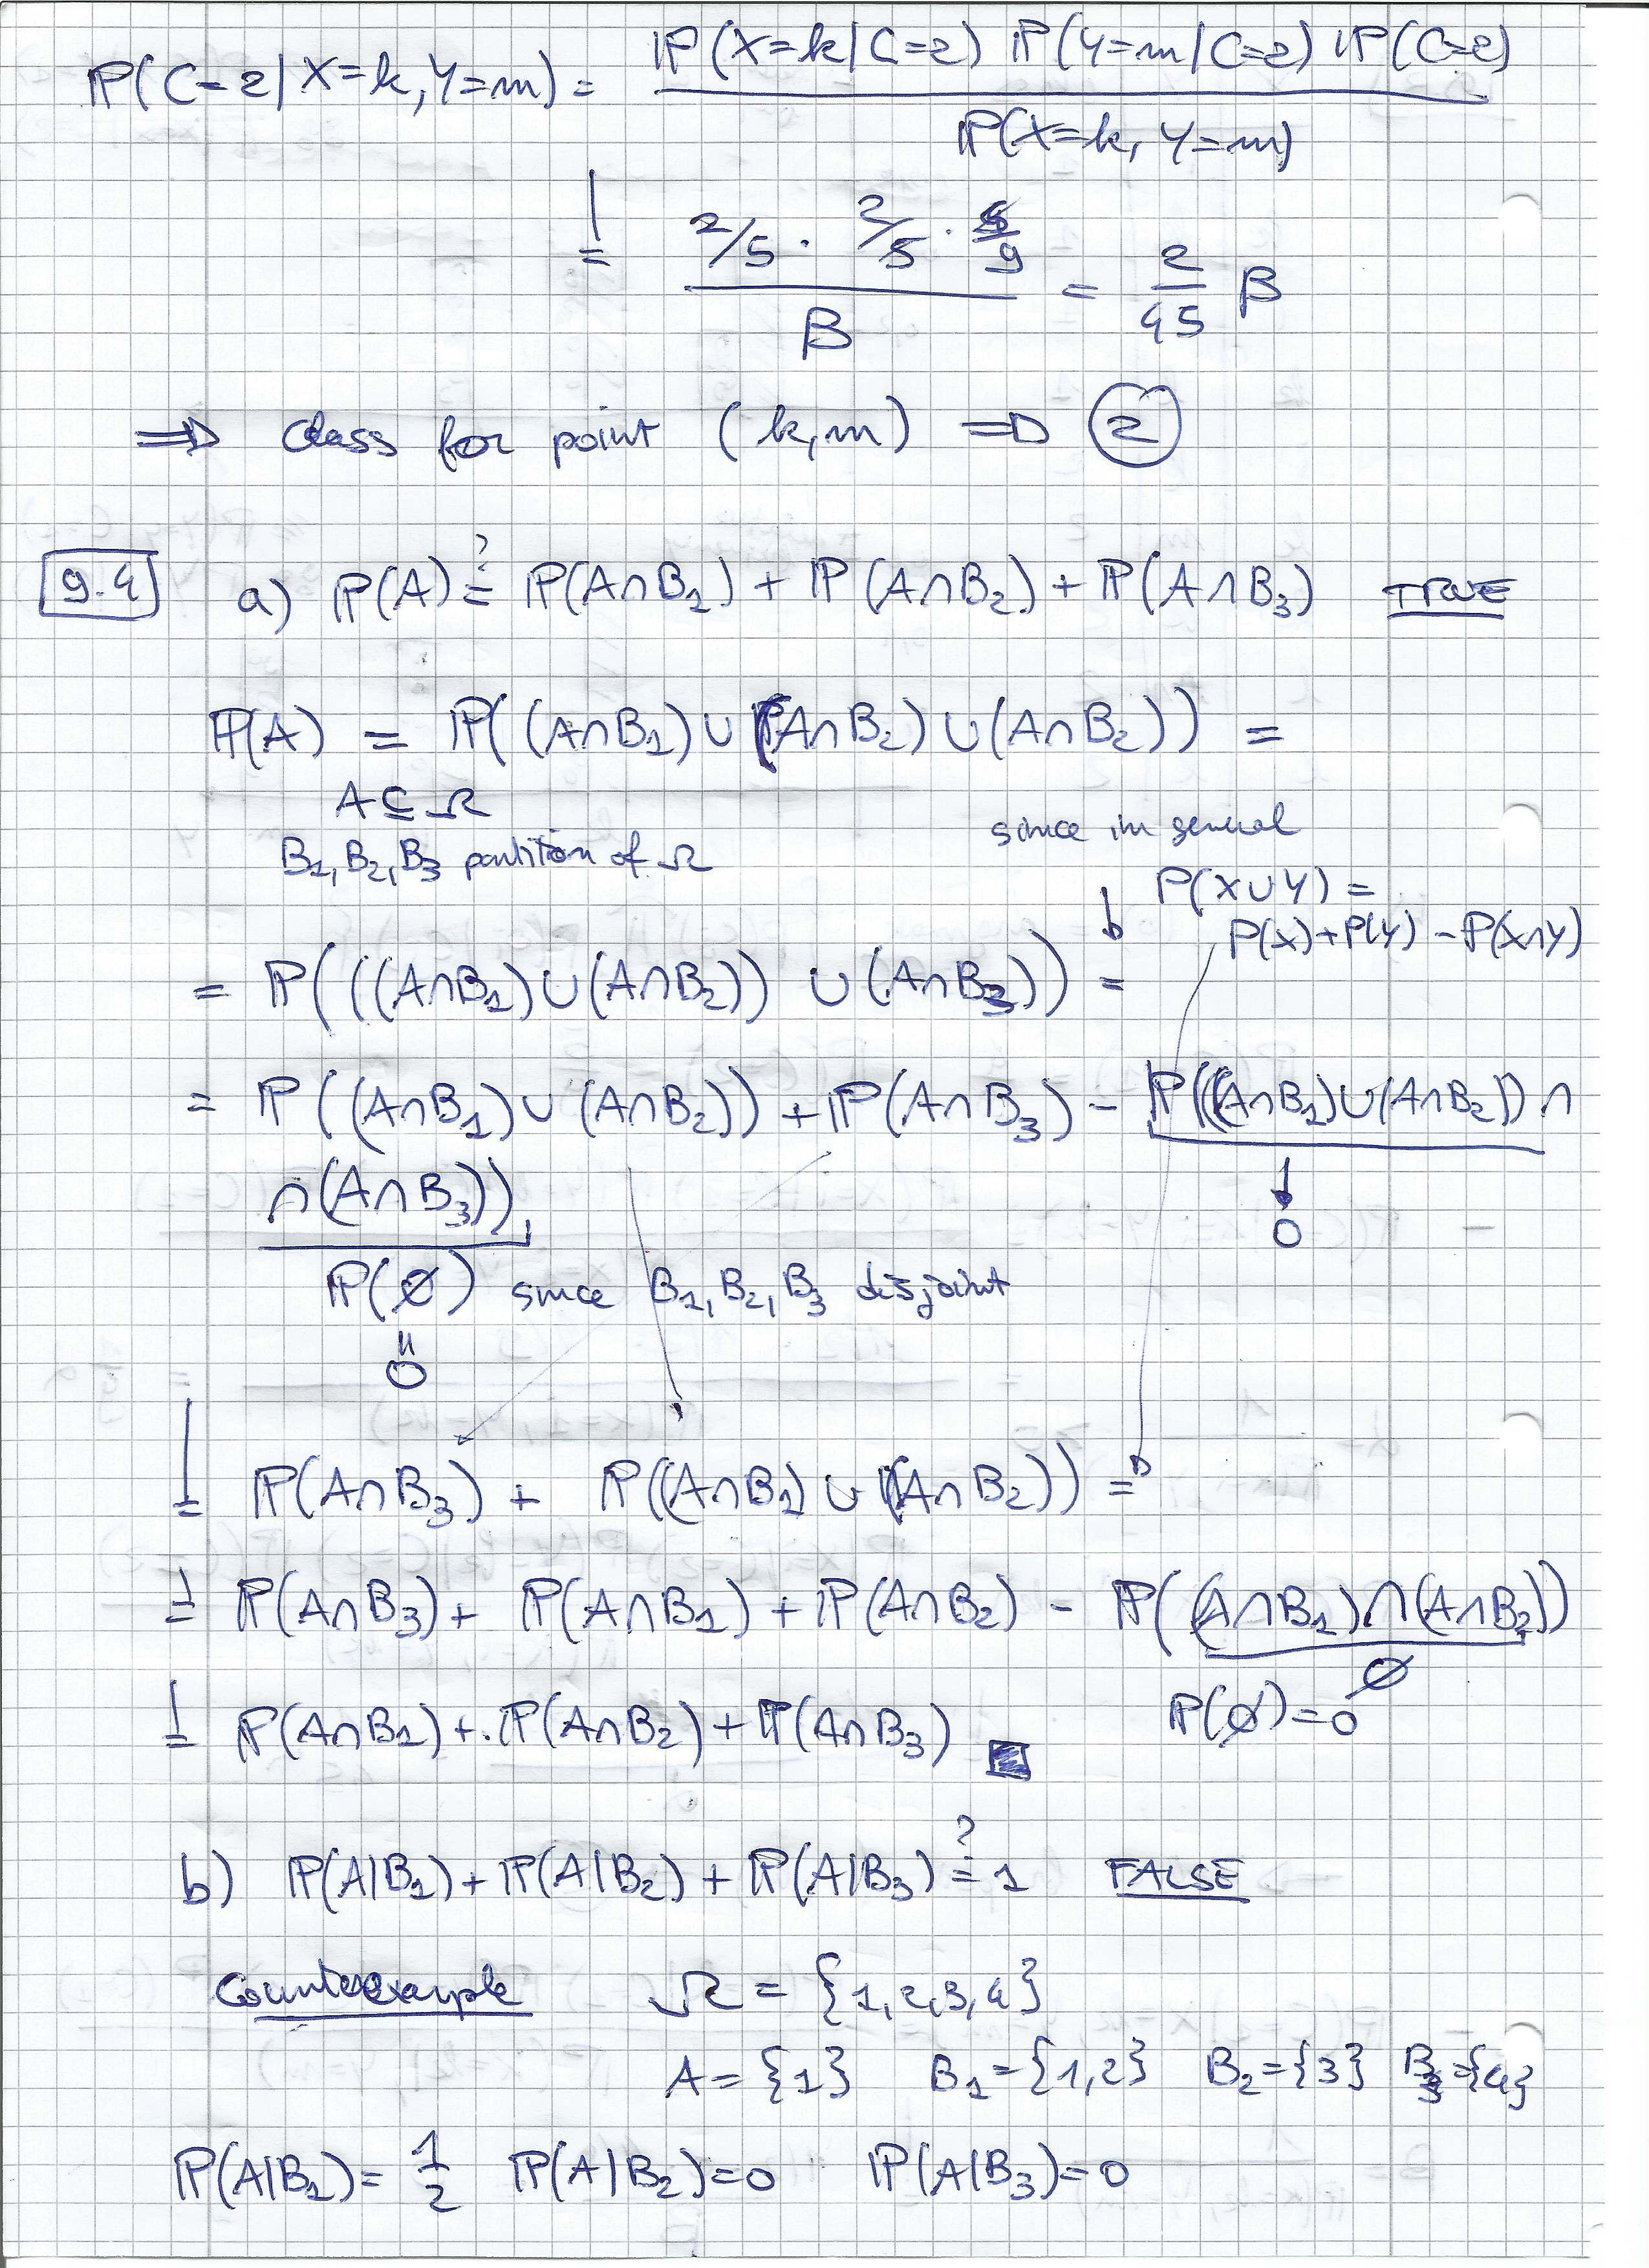 P(C=2|X=k,Y=m) = P(X=k|C=2) P(Y=m|C=2) P(C=2)
P(X=k, Y=m)
= 2/5 · 2/5 · 5/9 / β = 2/45 β
⇒ class for point (k,m) ⇒ 2
9.4 a) P(A) ?= P(A∩B1) + P(A∩B2) + P(A∩B3) TRUE
P(A) = P((A∩B1) ∪ (A∩B2) ∪ (A∩B2)) =
A ⊆ Ω
B1, B2, B3 partition of Ω
since in general
P(X∪Y) =
P(X)+P(Y) - P(X∩Y)
= P(((A∩B1)∪(A∩B2)) ∪ (A∩B3)) =
= P((A∩B1)∪(A∩B2)) + P(A∩B3) - P(((A∩B1)∪(A∩B2)) ∩
∩(A∩B3))
0
P(∅) since B1, B2, B3 disjoint
=
0
= P(A∩B3) + P((A∩B1) ∪ (A∩B2)) =
= P(A∩B3) + P(A∩B1) + P(A∩B2) - P((A∩B1)∩(A∩B2))
∅
= P(A∩B1) + P(A∩B2) + P(A∩B3) P(∅)=0
b) P(A|B1) + P(A|B2) + P(A|B3) ?= 1 FALSE
Counterexample Ω = {1,2,3,4}
A = {1} B1={1,2} B2={3} B3={4}
P(A|B1) = 1/2 P(A|B2)=0 P(A|B3)=0